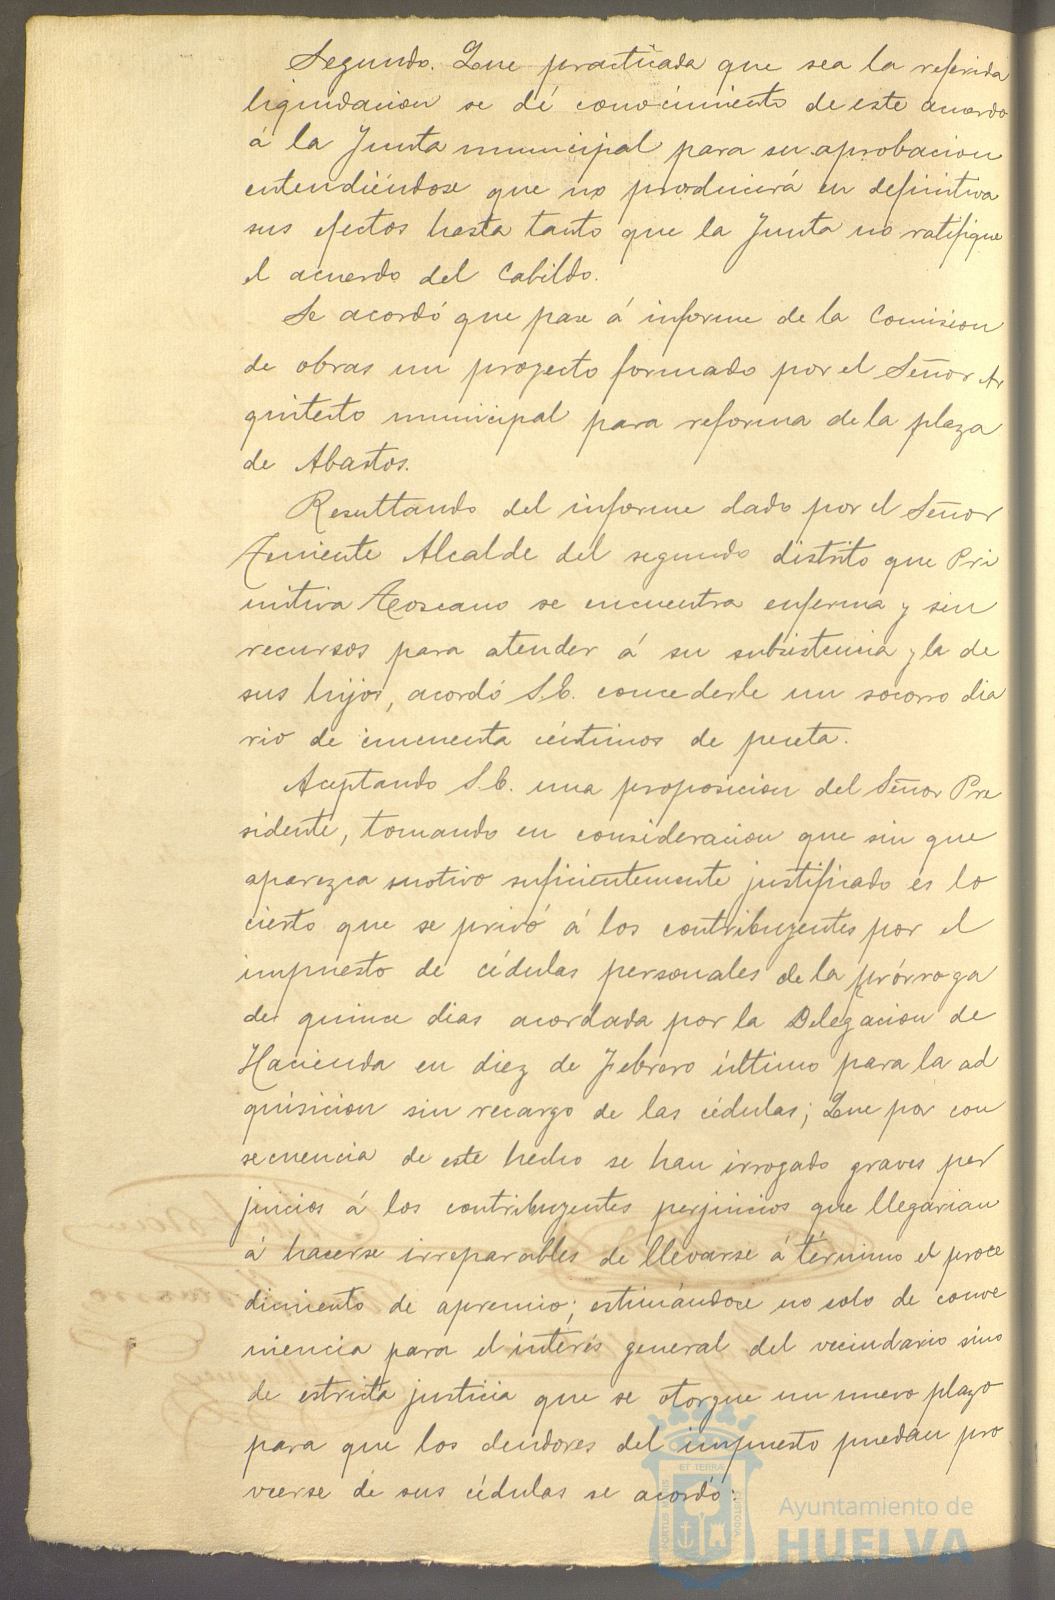 Segundo. Que practicada que sea la referida
liquidacion se dé conocimiento de este acuerdo
á la Junta municipal para su aprobacion
entendiéndose que no producirá en definitiva
sus efectos hasta tanto que la Junta no ratifique
el acuerdo del Cabildo.
Se acordó que pase á informe de la Comision
de obras un proyecto formado por el Señor Ar
quitecto municipal para reforma de la plaza
de Abastos.
Resultando del informe dado por el Señor
Teniente Alcalde del segundo distrito que Pri
mitiva Toscano se encuentra enferma y sin
recursos para atender á su subsistencia y la de
sus hijos, acordó S.E. concederle un socorro dia
rio de cincuenta céntimos de peseta.
Aceptando S.E. una proposicion del Señor Pre
sidente, tomando en consideracion que sin que
aparezca motivo suficientemente justificado es lo
cierto que se privó á los contribuyentes por el
impuesto de cédulas personales de la prórroga
de quince dias acordada por la Delegacion de
Hacienda en diez de Febrero último para la ad
quisicion sin recargo de las cédulas; Que por con
secuencia de este hecho se han irrogado graves per
juicios á los contribuyentes perjuicios que llegarian
á hacerse irreparables de llevarse á término el proce
dimiento de apremio; estimándose no solo de conve
niencia para el interés general del vecindario sino
de estricta justicia que se otorgue un nuevo plazo
para que los deudores del impuesto puedan pro
veerse de sus cédulas se acordó:
ET TERRAE
PORTUS MARIS
CUSTODIA
Ayuntamiento de
HUELVA